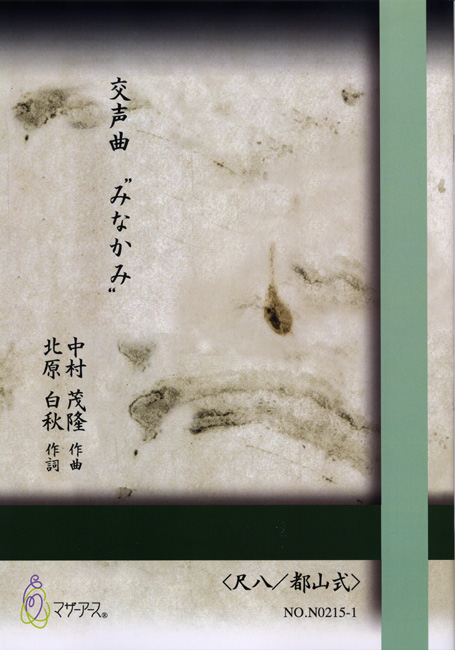 交声曲 〝みなかみ〟
中村 茂隆 作曲
北原 白秋 作詞
〈尺八／都山式〉
NO.N0215-1
マザーアース®